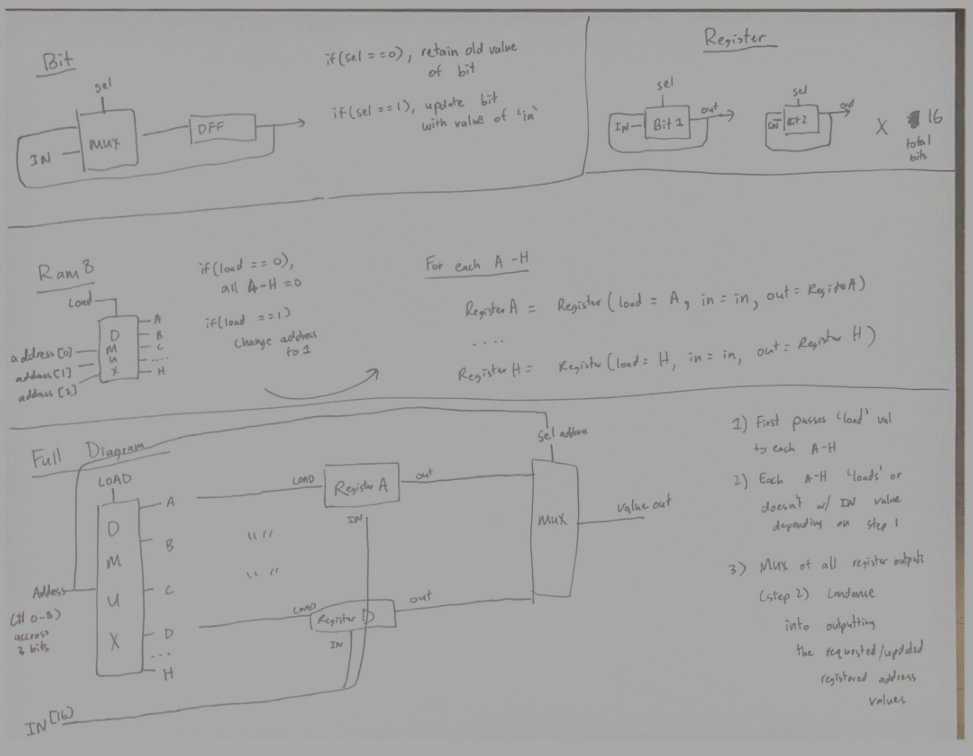 Bit
sel
MUX
IN
DFF
if(sel ==0), retain old value
of bit
if(sel ==1), update bit
with value of 'in'
Register
sel
IN
Bit 1
out
sel
IN
Bit 2
out
X 16
total
bits
Ram 8
Load
D
M
U
X
address [0]
address [1]
address [2]
A
B
C
....
H
if(load == 0),
all A-H =0
if(load ==1)
Change address
to 1
For each A-H
Register A = Register (load = A, in = in, out = Register A)
....
Register H = Register (load = H, in = in, out = Register H)
Full Diagram
LOAD
D
M
U
X
Address
(# 0-8)
accross
3 bits
A
B
C
D
...
H
IN [16]
LOAD
Register A
out
IN
"" ""
"" ""
LOAD
Register D
out
IN
Sel address
MUX
value out
1) First passes 'load' val
to each A-H
2) Each A-H 'loads' or
doesn't w/ IN value
depending on step 1
3) Mux of all register outputs
(step 2) Condense
into outputting
the requested/updated
registered address
values